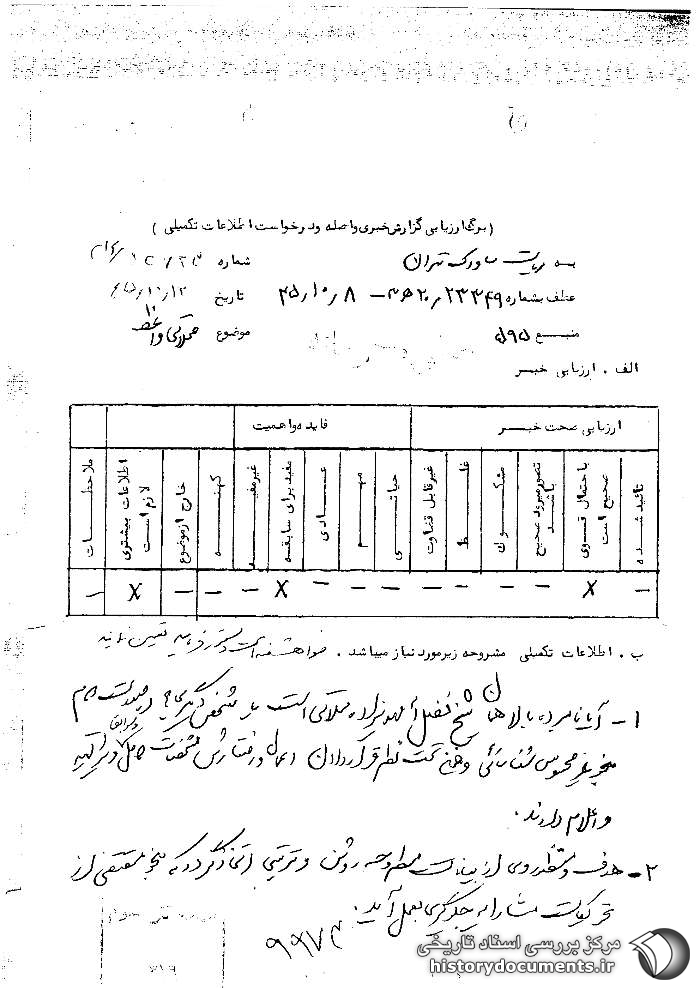 (برگ ارزیابی گزارش خبری واصله و درخواست اطلاعات تکمیلی)
به ریاست ساواک تهران
شماره
عطف بشماره ۲۳۳۴۹/۲۰ﻫ۳ – ۴۵/۱۰/۸
تاریخ
منبع ۵۹۵
موضوع محلاتی واعظ
الف . ارزیابی خبر
ارزیابی صحت خبر
فایده و اهمیت
تائید شده
با احتمال قوی صحیح است
تصور میرود صحیح باشد
مشکوک
غلط
غیر قابل قضاوت
حیاتی
مهم
عادی
مفید برای سابقه
غیر مفید
کهنه
خارج از موضوع
اطلاعات بیشتری لازم است
ملاحظات
— X — — — — — — — X — — — X —
ب . اطلاعات تکمیلی مشروحه زیر مورد نیاز میباشد . خواهشمند است دستور فرمایید تعیین نمایند
۱- آیا نامبرده بالا همان شیخ فضل اله محلاتی است یا شخص دیگری؟ در صورت
بنحو غیر محسوس شناسائی و ضمن تحت نظر قراردادن اعمال و رفتارش مشخصات کامل و
و اعلام دارند .
۲- هدف و منظور وی از بیانات مطروحه روشن و ترتیبی اتخاذ گردد که بنحو مقتضی از
تحریکات مشارالیه جلوگیری بعمل آید .
۹۹۷۳
مرکز بررسی اسناد تاریخی
historydocuments.ir